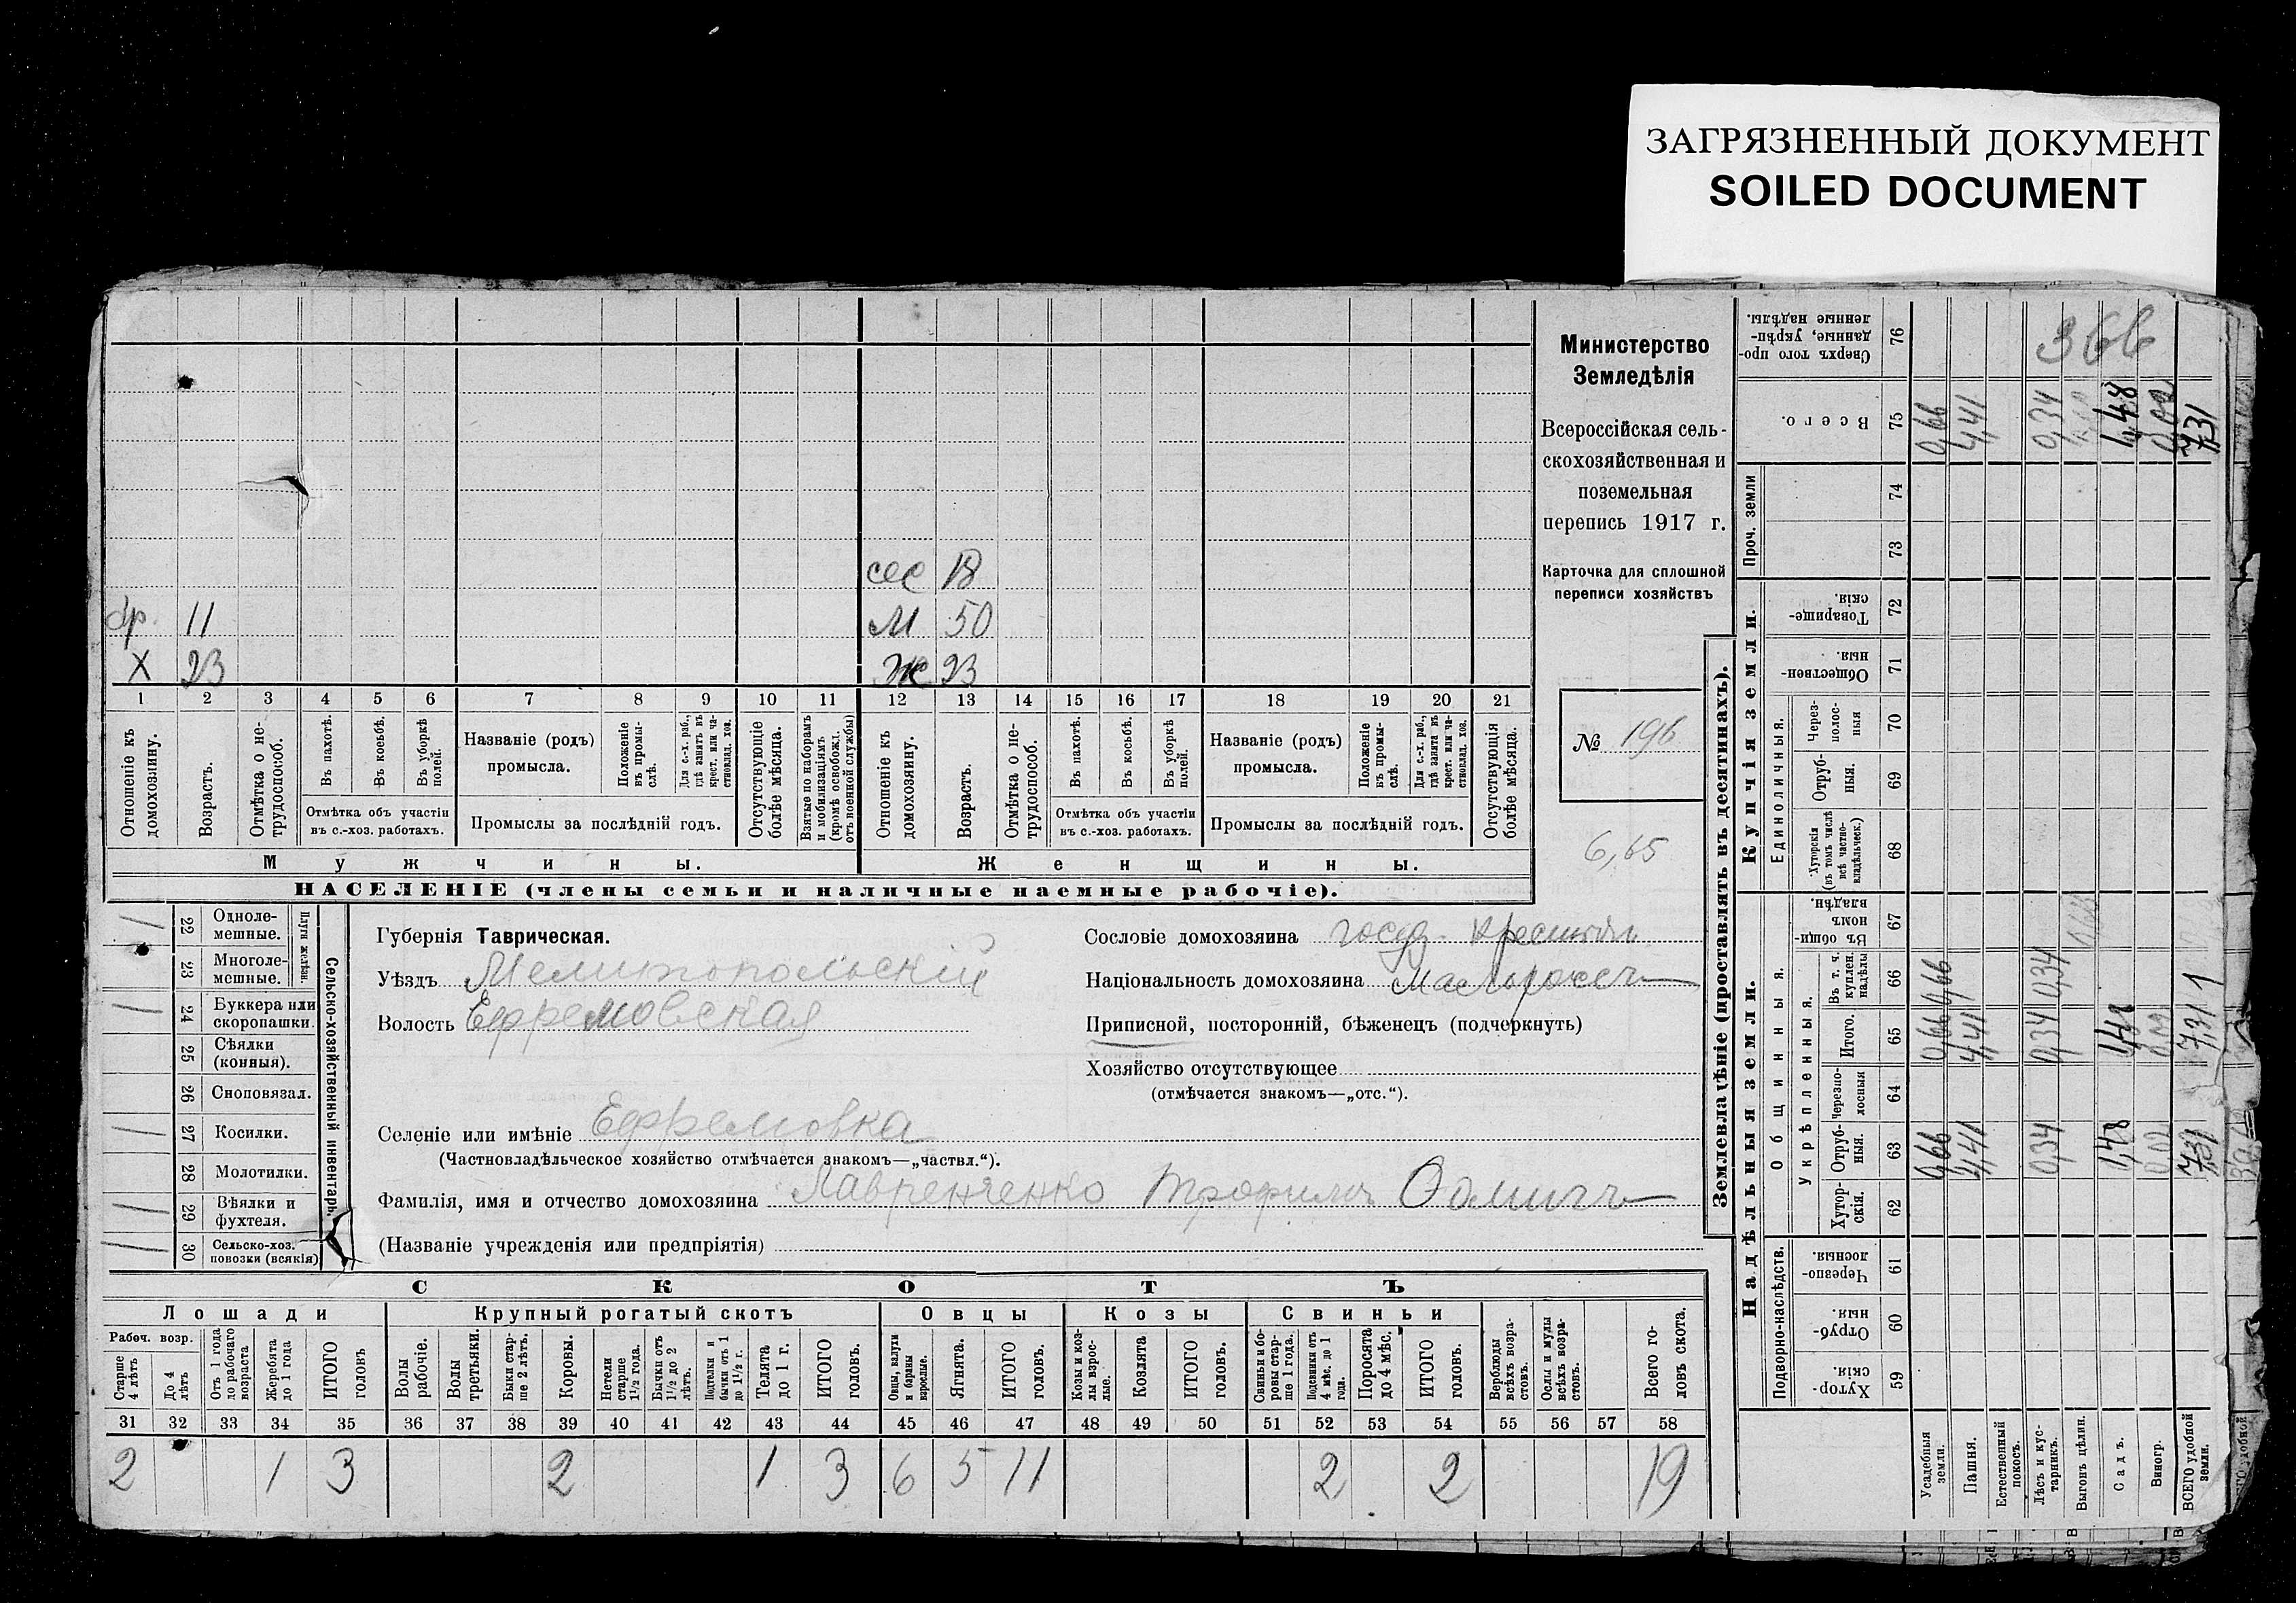 ЗАГРЯЗНЕННЫЙ ДОКУМЕНТ
SOILED DOCUMENT
сес 18
бр. 11
М 50
Х 23
Ж 23
1 2 3 4 5 6 7 8 9 10 11 12 13 14 15 16 17 18 19 20 21
Отношеніе къ домохозяину.
Возрастъ.
Отмѣтка о не-трудоспособ.
Въ пахотѣ.
Въ косьбѣ.
Въ уборкѣ полей.
Отмѣтка объ участіи
въ с.-хоз. работахъ.
Названіе (родъ)
промысла.
Положеніе въ промы-слѣ.
Для с.-х. раб., гдѣ занятъ въ крест. или ча-стновлад. хоз.
Промыслы за послѣдній годъ.
Отсутствующіе болѣе мѣсяца.
Взятые по наборамъ и мобилизаціямъ (кромѣ освобожд. отъ военной службы)
Отношеніе къ домохозяину.
Возрастъ.
Отмѣтка о не-трудоспособ.
Въ пахотѣ.
Въ косьбѣ.
Въ уборкѣ полей.
Отмѣтка объ участіи
въ с.-хоз. работахъ.
Названіе (родъ)
промысла.
Положеніе въ промы-слѣ.
Для с.-х. раб., гдѣ занята въ крест. или ча-стновлад. хоз.
Промыслы за послѣдній годъ.
Отсутствующія болѣе мѣсяца.
Мужчины.
Женщины.
НАСЕЛЕНІЕ (члены семьи и наличные наемные рабочіе).
Министерство
Земледѣлія
Всероссійская сель-
скохозяйственная и
поземельная
перепись 1917 г.
Карточка для сплошной
переписи хозяйствъ
№ 196
6,65
Сельско-хозяйственный инвентарь.
Плуги желѣзн.
1 22 Одноле-мешные.
23 Многоле-мешные.
1 24 Буккера или скоропашки.
25 Сѣялки (конныя).
26 Сноповязал.
1 27 Косилки.
28 Молотилки.
1 29 Вѣялки и фухтеля.
30 Сельско-хоз. повозки (всякія)
Губернія Таврическая.
Уѣздъ Мелитопольскій
Волость Ефремовская
Селеніе или имѣніе Ефремовка
(Частновладѣльческое хозяйство отмѣчается знакомъ—„частвл.“).
Фамилія, имя и отчество домохозяина Лавренченко Трофимъ
(Названіе учрежденія или предпріятія)
Сословіе домохозяина госуд. крестьян.
Національность домохозяина Малороссъ
Приписной, посторонній, бѣженецъ (подчеркнуть)
Хозяйство отсутствующее
(отмѣчается знакомъ—„отс.“).
СКОТЪ
Лошади
Крупный рогатый скотъ
Овцы
Козы
Свиньи
Рабоч. возр.
Старше 4 лѣтъ
До 4 лѣтъ
Отъ 1 года до рабочаго возраста
Жеребята до 1 года
ИТОГО головъ
Волы рабочіе.
Волы третьяки.
Быки стар-ше 2 лѣтъ.
Коровы.
Нетели старше 1½ года.
Бычки отъ 1½ до 2 лѣтъ.
Подтелки и бычки отъ 1 до 1½ г.
Телята до 1 г.
ИТОГО головъ.
Овцы, валухи и бараны взрослые.
Ягнята.
ИТОГО головъ.
Козы и коз-лы взрос-лые.
Козлята
ИТОГО головъ.
Свиньи и бо-ровы стар-ше 1 года.
Подсвинки отъ 4 мѣс. до 1 года.
Поросята до 4 мѣс.
ИТОГО головъ.
Верблюды всѣхъ возра-стовъ.
Ослы и мулы всѣхъ возра-стовъ.
Всего го-ловъ скота.
31 32 33 34 35 36 37 38 39 40 41 42 43 44 45 46 47 48 49 50 51 52 53 54 55 56 57 58
2 1 3 2 1 3 6 5 11 2 2 19
Землевладѣніе (проставлять въ десятинахъ).
Сверхъ того про-данные, укрѣп-ленные надѣлы. 76
366
Всего. 75 0,66 4,41 0,34 1,48 0,02 7,31
Проч. земли
74
73
Купчія земли.
Товарище-скія. 72
Обществен-ныя. 71
Единоличныя.
Через-полос-ныя 70
Отруб-ныя. 69
Хуторскія (въ томъ числѣ всѣ частно-владѣльческ.) 68
Надѣльныя земли.
Общинныя.
Въ общин-номъ владѣн. 67
Укрѣпленныя.
Въ т. ч. куплен. надѣлы 66 0,66 0,34
Итого. 65 0,66 4,41 0,34 1,48 0,02 7,31
Черезпо-лосныя 64
Отруб-ныя. 63 0,66 4,41 0,34 1,48 0,02 7,31
Хутор-скія. 62
Подворно-наслѣдств.
Черезпо-лосныя 61
Отруб-ныя. 60
Хутор-скія. 59
Усадебныя земли.
Пашня.
Естественный покосъ.
Лѣсъ и кус-тарникъ.
Выгонъ цѣлин.
Садъ.
Виногр.
ВСЕГО удобной земли.